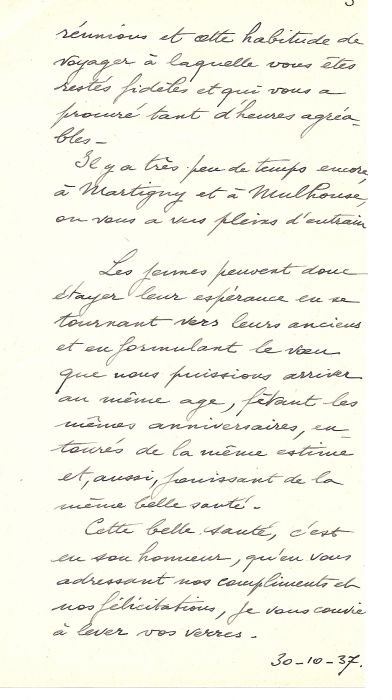 réunions et cette habitude de
voyager à laquelle vous êtes
restés fidèles et qui vous a
procuré tant d'heures agréa-
bles -
Il y a très peu de temps encore,
à Martigny et à Mulhouse,
on vous a vus pleins d'entrain
Les jeunes peuvent donc
étayer leur espérance en se
tournant vers leurs anciens
et en formulant le vœu
que nous puissions arriver
au même age, fêtant les
mêmes anniversaires, en-
tourés de la même estime
et, aussi, jouissant de la
même belle santé -
Cette belle santé, c'est
en son honneur, qu'en vous
adressant nos compliments et
nos félicitations, je vous convie
à lever vos verres -
30-10-37.